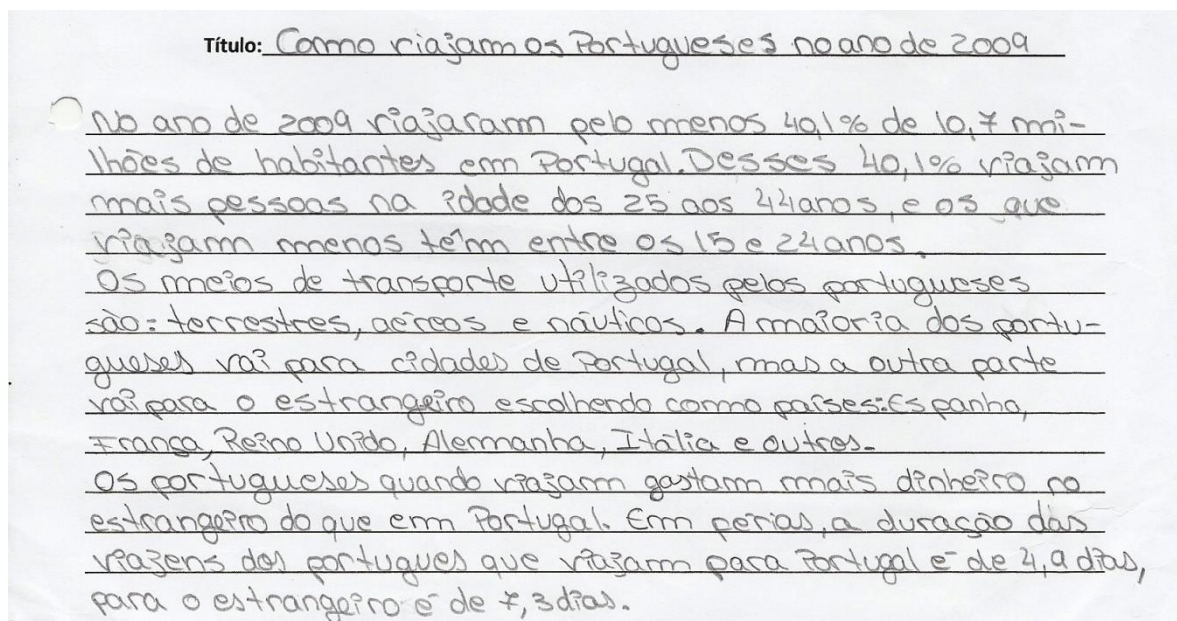 Título: Como viajam os Portugueses no ano de 2009
No ano de 2009 viajaram pelo menos 40,1% de 10,7 mi-
lhões de habitantes em Portugal. Desses 40,1% viajam
mais pessoas na idade dos 25 aos 44 anos, e os que
viajam menos têm entre os 15 e 24 anos.
Os meios de transporte utilizados pelos portugueses
são: terrestres, aéreos e náuticos. A maioria dos portu-
gueses vai para cidades de Portugal, mas a outra parte
vai para o estrangeiro escolhendo como países: Espanha,
França, Reino Unido, Alemanha, Itália e outros.
Os portugueses quando viajam gastam mais dinheiro no
estrangeiro do que em Portugal. Em férias, a duração das
viajens dos portugues que viajam para Portugal é de 4,9 dias,
para o estrangeiro é de 7,3 dias.